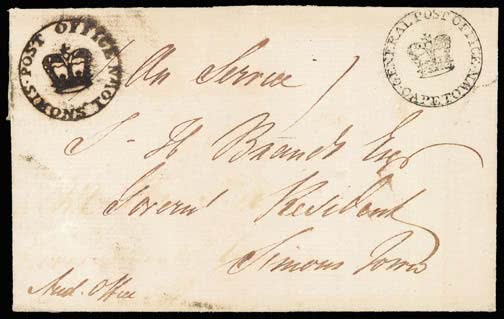 POST OFFICE SIMONS TOWN
GENERAL POST OFFICE CAPE TOWN
On Service
J. H Brandt Esqr
Governt Resident
Simons Town
Aud. Office